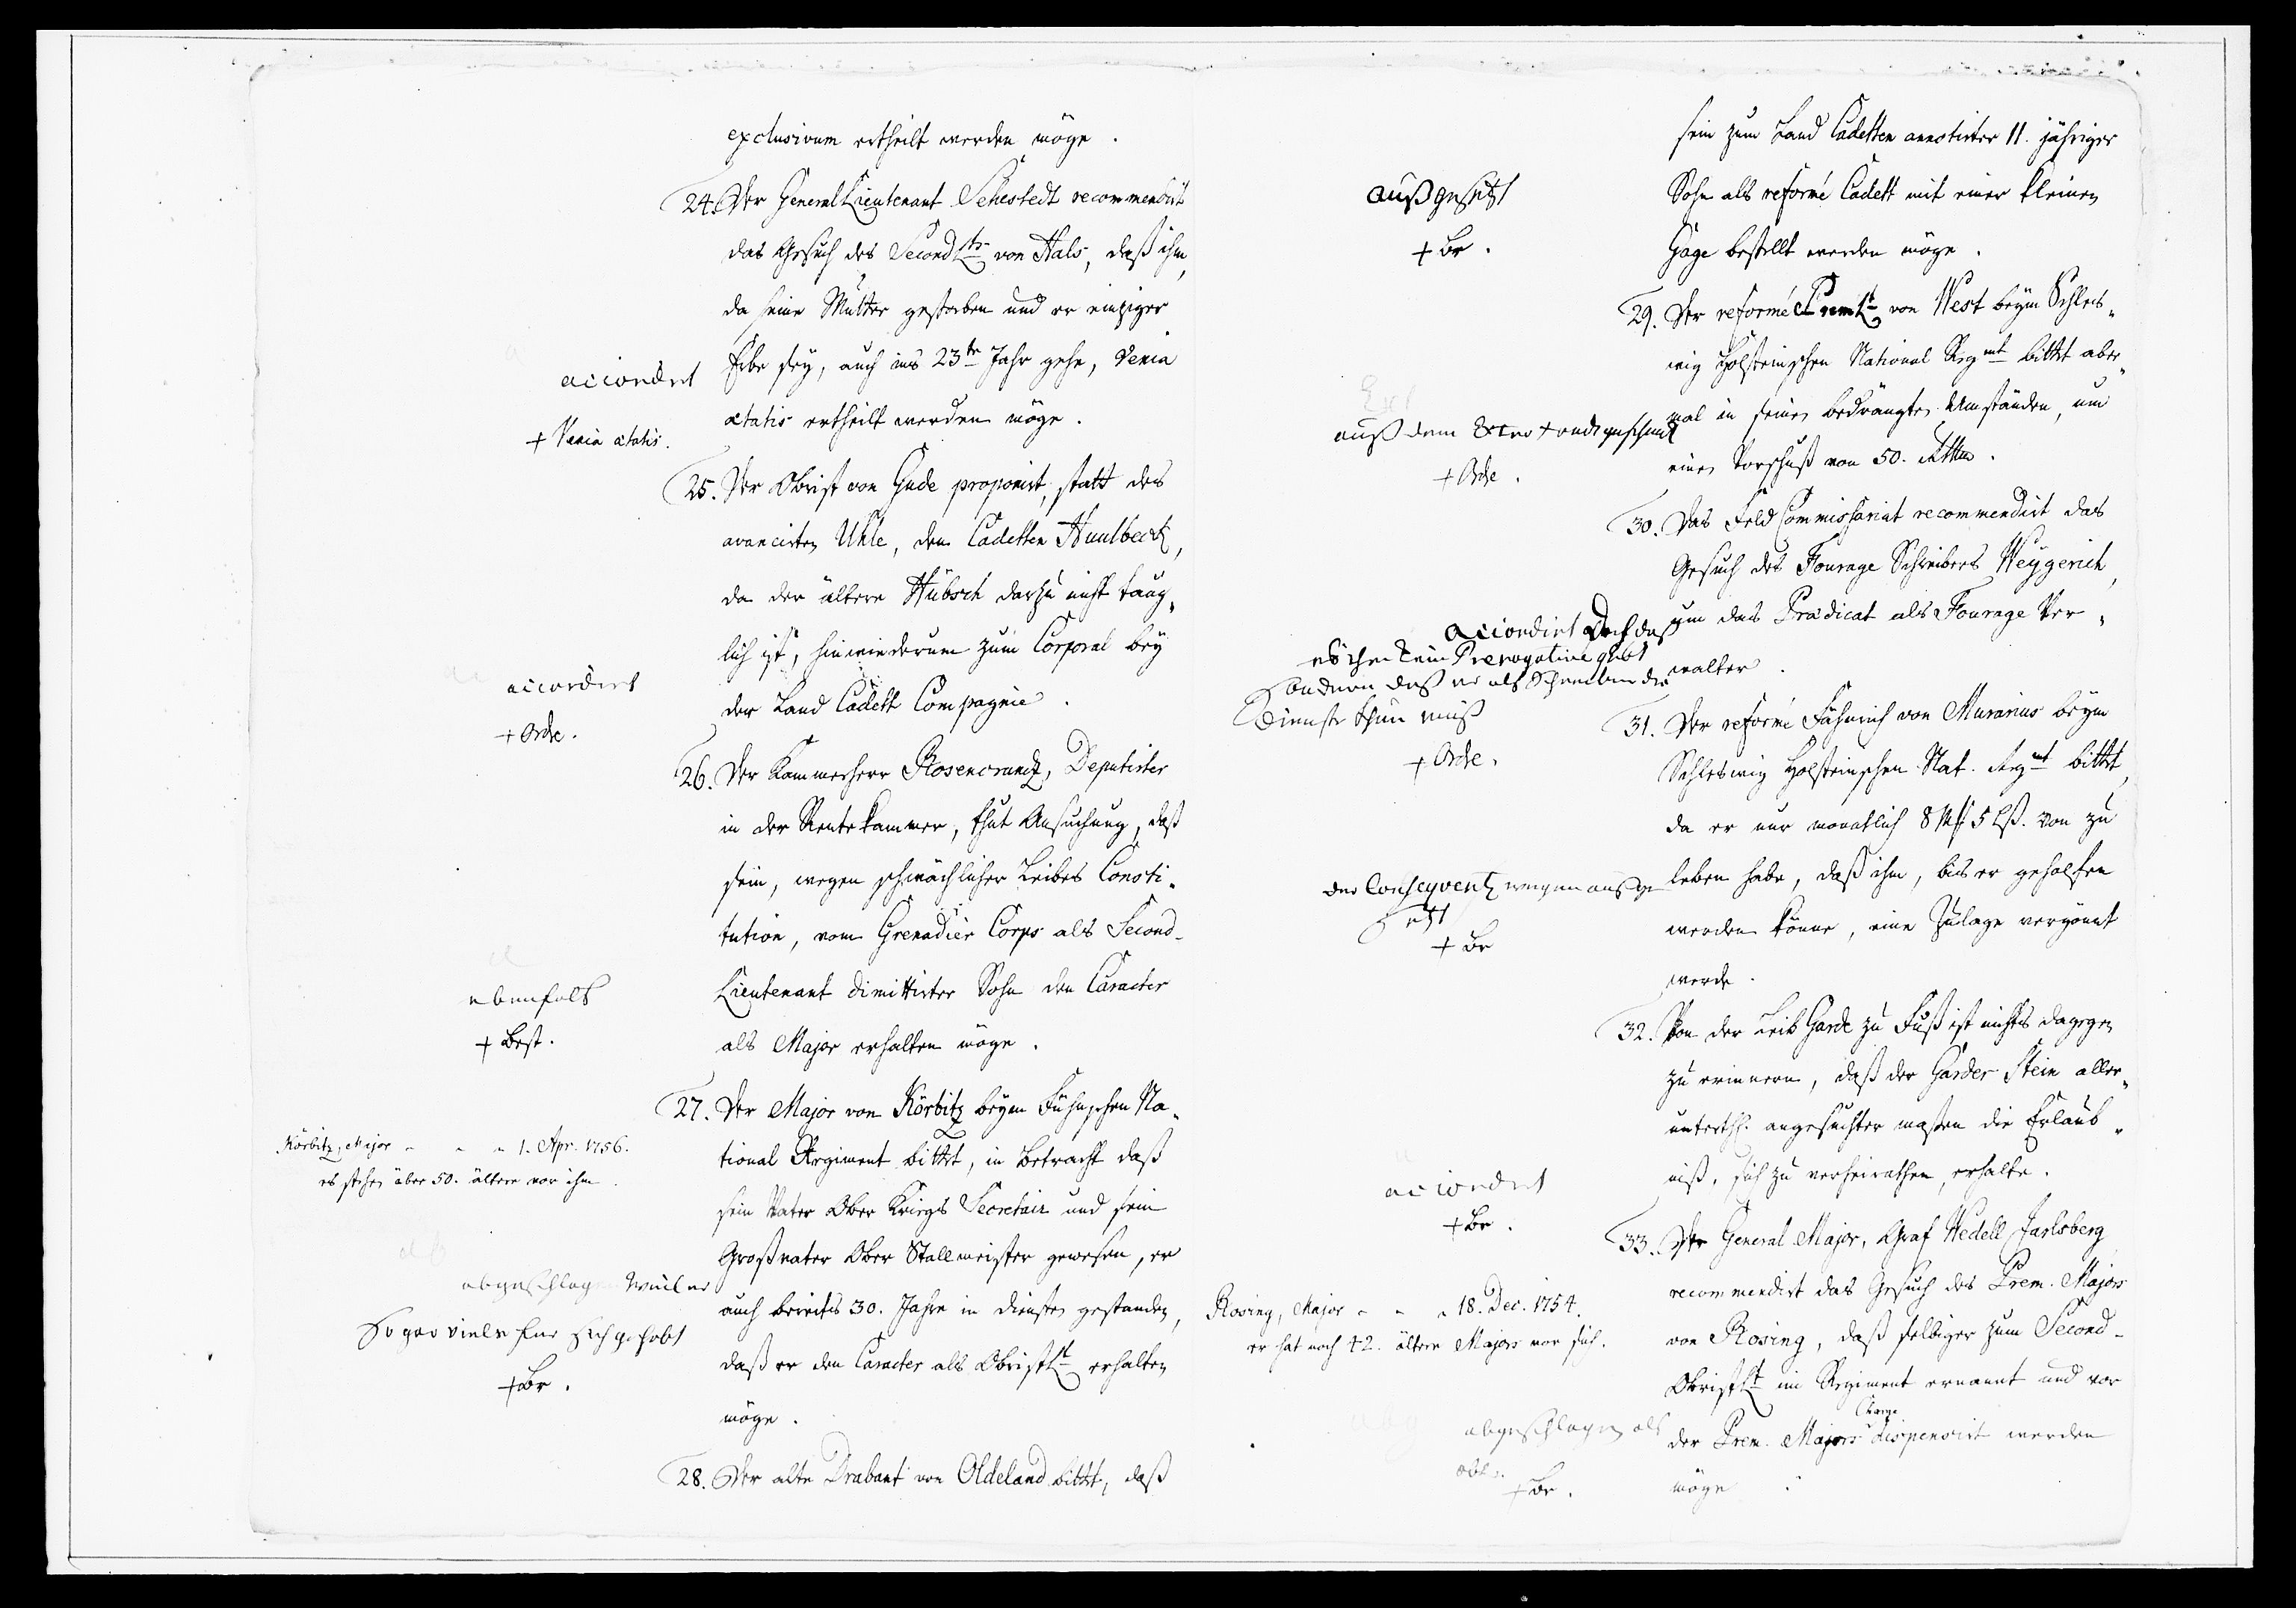 exclusivum ertheilt werden möge.
24. Der General Lieutenant Sehestedt recommendirt
das Gesuch des Second Lts von Hals, daß ihm,
da seine Mutter gestorben und er einziger
Erbe sey, auch ins 23te Jahr gehe, Venia
accordirt
ætatis ertheilt werden möge.
+ Venia ætatis.
25. Der Obrist von Gude proponirt, statt des
avancirten Uhle, den Cadetten Huulbeck,
da der ältere Hübsch darzu nicht taug„
lich ist, hinwiederum zum Corporal bey
accordirt
der Land Cadett Compagnie.
+ Ordr.
26. Der Kammerherr Rosencrantz, Deputirter
in der Rentekammer, thut Ansuchung, daß
sein, wegen schwächlicher Leibes Consti„
tution, vom Grenadier Corps als Second-
Lieutenant dimittirter Sohn den Caracter
ebenfals
als Major erhalten möge.
+ Best.
27. Der Major von Körbitz beym Fühnschen Na„
Körbitz, Major „ „ „ 1. Apr. 1756.
tional Regiment bittet, in Betracht daß
es stehen über 50. ältere vor ihm.
sein Vater Ober Kriegs Secretair und sein
Großvater Ober Stallmeister gewesen, er
abgeschlagen weil er
auch bereits 30. Jahre in Diensten gestanden,
so gar viele für sich gehabt
daß er den Caracter als Obristlt erhalten
+ Br.
möge.
28. Der alte Drabant von Oldeland bittet, daß
sein zum Land Cadetten annotirter 11. jähriger
Sohn als reformé Cadett mit einer kleinen
außgesetzt
Gage bestellt werden möge.
+ Br.
29. Der reformé Prem Lt von West beym Schles„
wig Holsteinschen National Regmt bittet aber„
mal in seinen bedrängten Umständen, um
auß dem geschenckt
einen Vorschuß von 50. Rthlr.
+ Ordr.
30. Das Feld Commissariat recommendirt das
Gesuch des Fourage Schreibers Weygerich,
um das Prædicat als Fourage Ver„
accordirt Doch daß
es ihm kein Prerogative giebt
walter.
sondern daß er als Schreiber die
Dienste thun muß
+ Ordr.
31. Der reformé Fähnrich von Muranius beym
Schleswig Holsteinschen Nat. Regmt bittet,
da er nur monatlich 8 Mk 5 Lß. von zu
leben habe, daß ihm, bis er geholfen
der Conseqventz wegen außge
setzt
werden könne, eine Zulage vergönnt
+ Br
werde.
32. Von der Leib Garde zu Fuß ist nichts dagegen
zu erinnern, daß der Garder Stein aller„
unterth. angesuchter maßen die Erlaub„
niß, sich zu verheirathen, erhalte.
accordirt
+ Br.
33. Der General Major, Graf Wedell Jarlsberg
recommendirt das Gesuch des Prem. Majors
Rosing, Major „ „ „ 18. Dec. 1754.
von Rosing, daß selbiger zum Second-
er hat noch 42. ältere Majors vor sich.
Obristlt im Regiment ernannt und vor
der Prem. Majors Charge dispensirt werden
abgeschlagen als
möge.
+ Br.